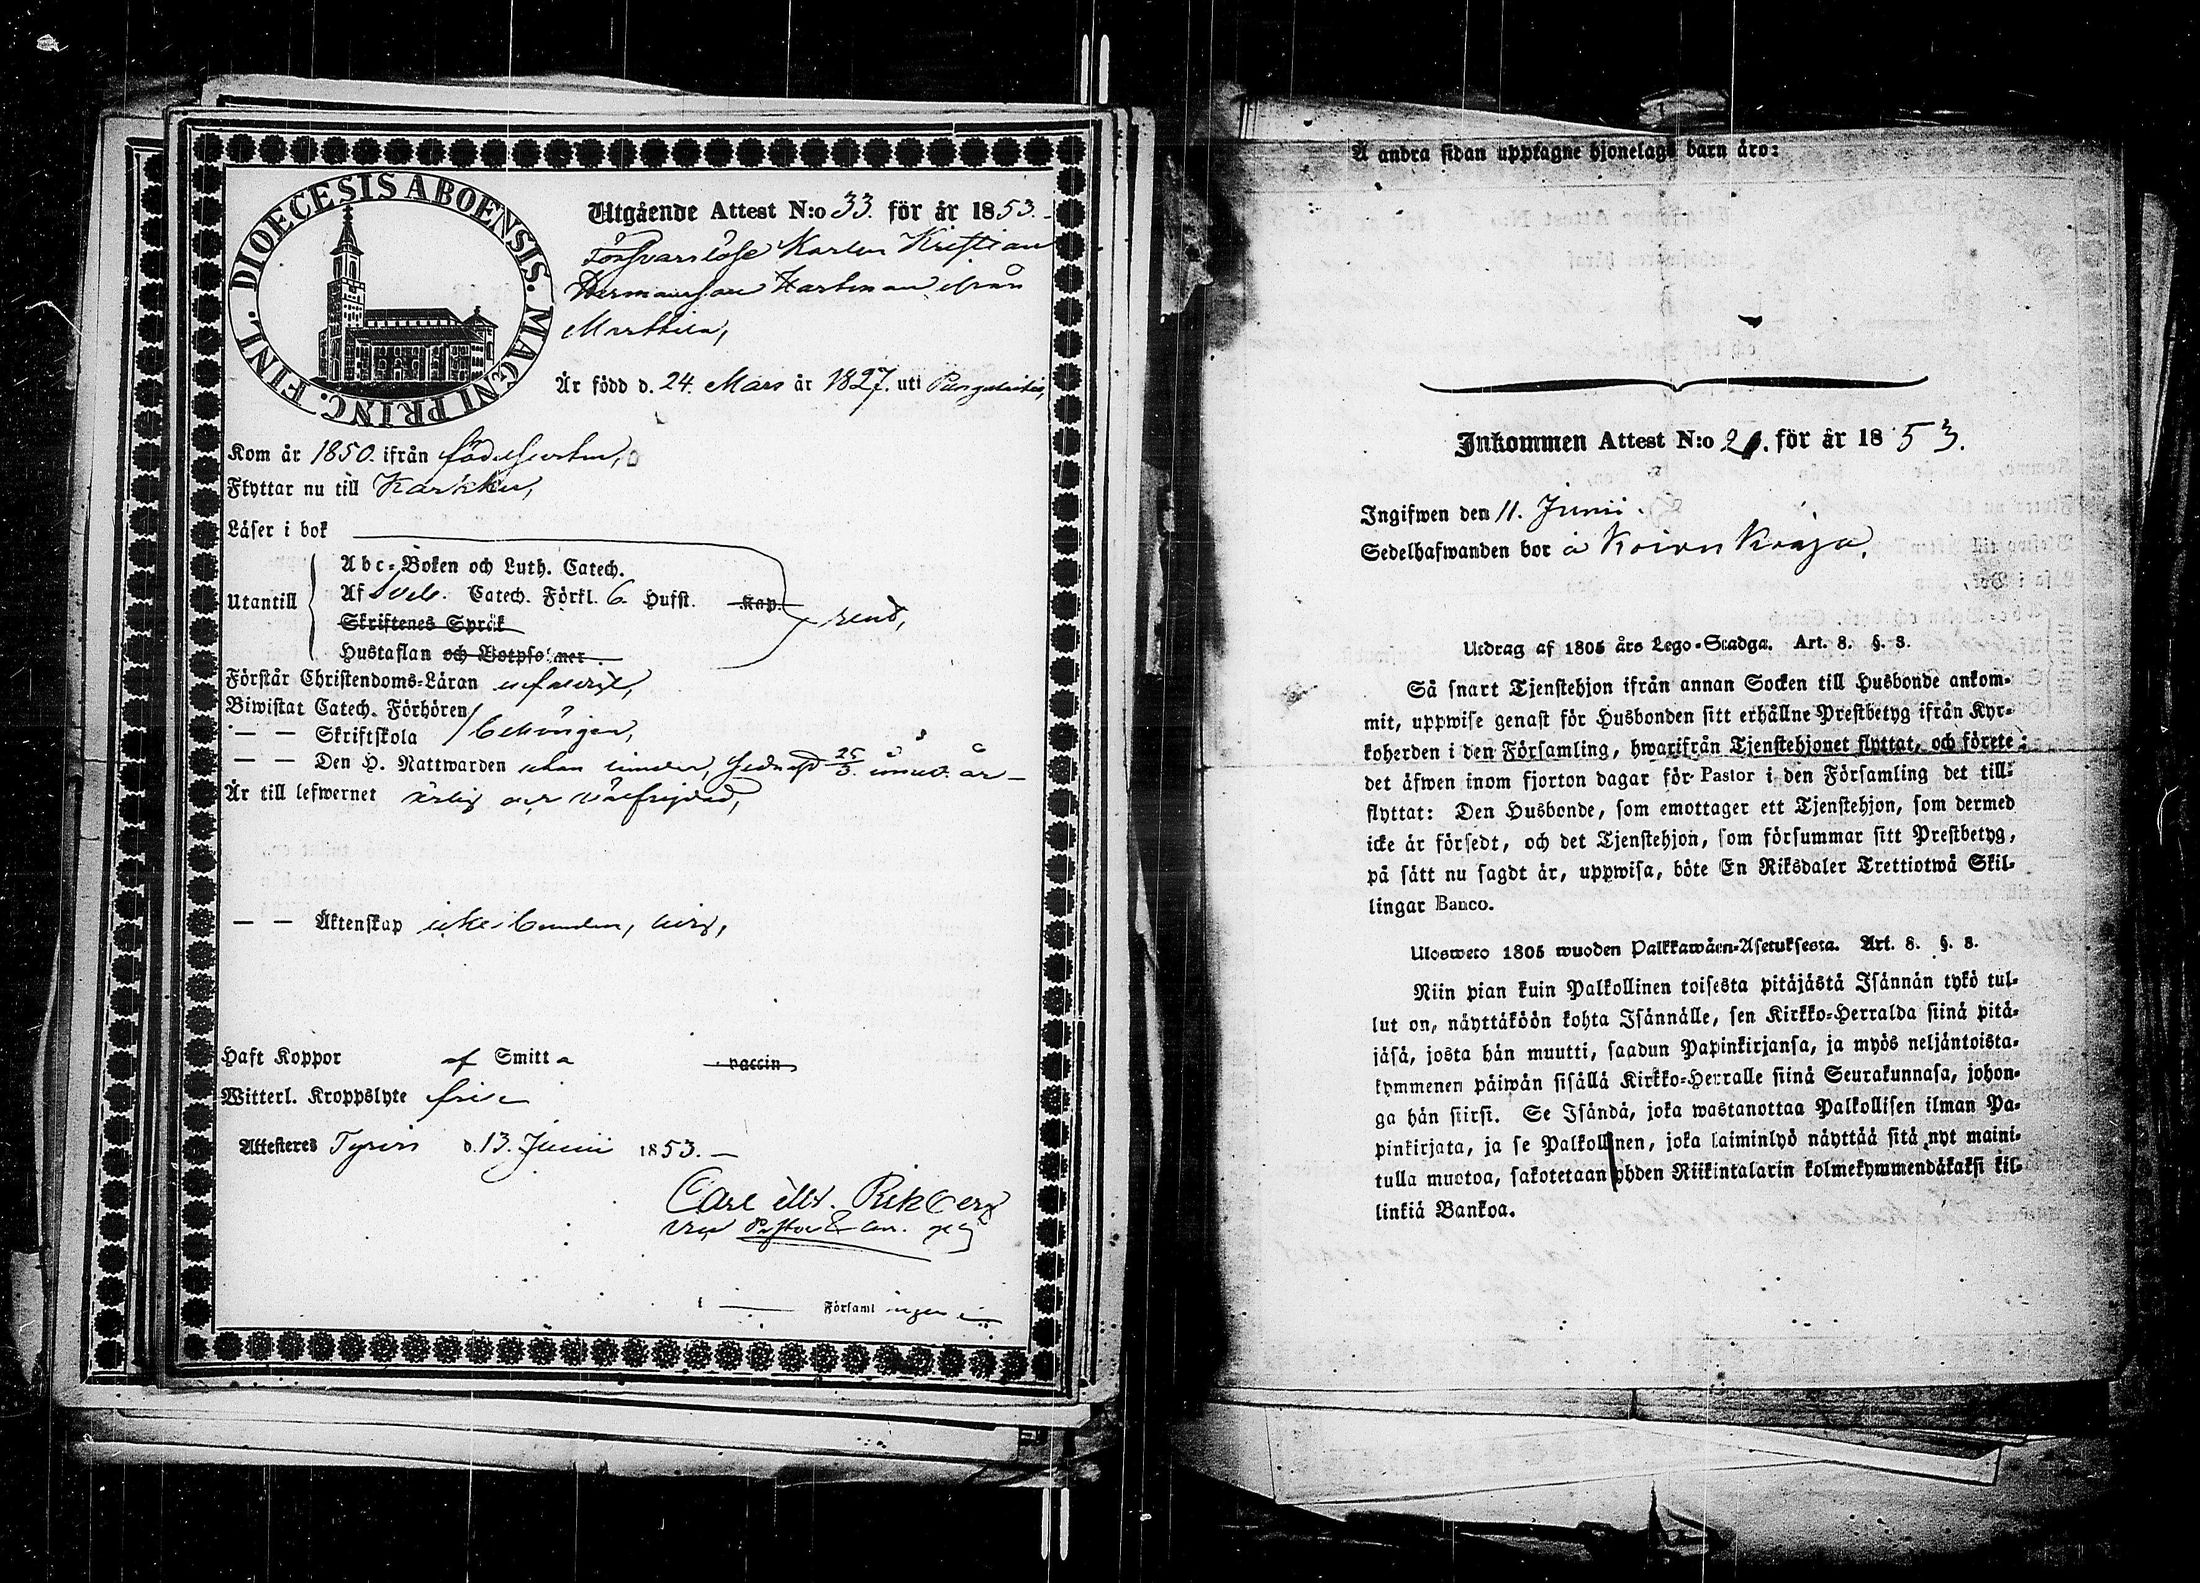 DIOECESIS ABOENSIS. MAGNI PRINC. FINL.
Utgående Attest N:o 33. för år 1853.
Försvarslöse Karlen Kristian
Hermansson Hartman ifrån
Marttila,
Är född d. 24. Mars år 1827. uti
Kom år 1850. ifrån födelseorten,
Flyttar nu till Karkku,
Läser i bok
Abc-Boken och Luth. Catech.
Utantill Af Sveb. Catech. Förkl. 6. Hufst. Kap. rent,
Skriftenes Språk
Hustaflan och Botpsalmer.
Förstår Christendoms-Läran
Biwistat Catech. Förhören
— — Skriftskola
— — Den H. Nattwarden sednast 25/3. år
Är till lefwernet ärlig och välfrejdad,
— — Äktenskap icke bunden, ledig,
Haft Koppor af Smitta vaccin
Witterl. Kroppslyte fri
Attesteres Tyrvis d. 13. Junii 1853.
Carl Rikberg
i Församlingen i
Å andra sidan upptagne hjonelags barn äro:
Inkommen Attest N:o 21. för år 1853.
Ingifwen den 11. Junii.
Sedelhafwanden bor å Koivu
Utdrag af 1805 års Lego-Stadga. Art. 8. §. 3.
Så snart Tjenstehjon ifrån annan Socken till Husbonde ankom-
mit, uppwise genast för Husbonden sitt erhållne Prestbetyg ifrån Kyr-
koherden i den Församling, hwarifrån Tjenstehjonet flyttat, och förete
det äfwen inom fjorton dagar för Pastor i den Församling det till-
flyttat: Den Husbonde, som emottager ett Tjenstehjon, som dermed
icke är försedt, och det Tjenstehjon, som försummar sitt Prestbetyg,
på sätt nu sagdt är, uppwisa, böte En Riksdaler Trettiotwå Skil-
lingar Banco.
Ulosweto 1805 wuoden Palkkawäen-Asetuksesta. Art. 8. §. 3.
Niin pian kuin Palkollinen toisesta pitäjästä Isännän tykö tul-
lut on, näyttäköön kohta Isännälle, sen Kirkko-Herralda siinä pitä-
jäsä, josta hän muutti, saadun Papinkirjansa, ja myös neljäntoista-
kymmenen päiwän sisällä Kirkko-Herralle siinä Seurakunnasa, johon-
ga hän siirsi. Se Isändä, joka wastanottaa Palkollisen ilman Pa-
pinkirjata, ja se Palkollinen, joka laiminlyö näyttää sitä nyt maini-
tulla muotoa, sakotetaan yhden Riikintalarin kolmekymmendäkaksi kil-
linkiä Bankoa.